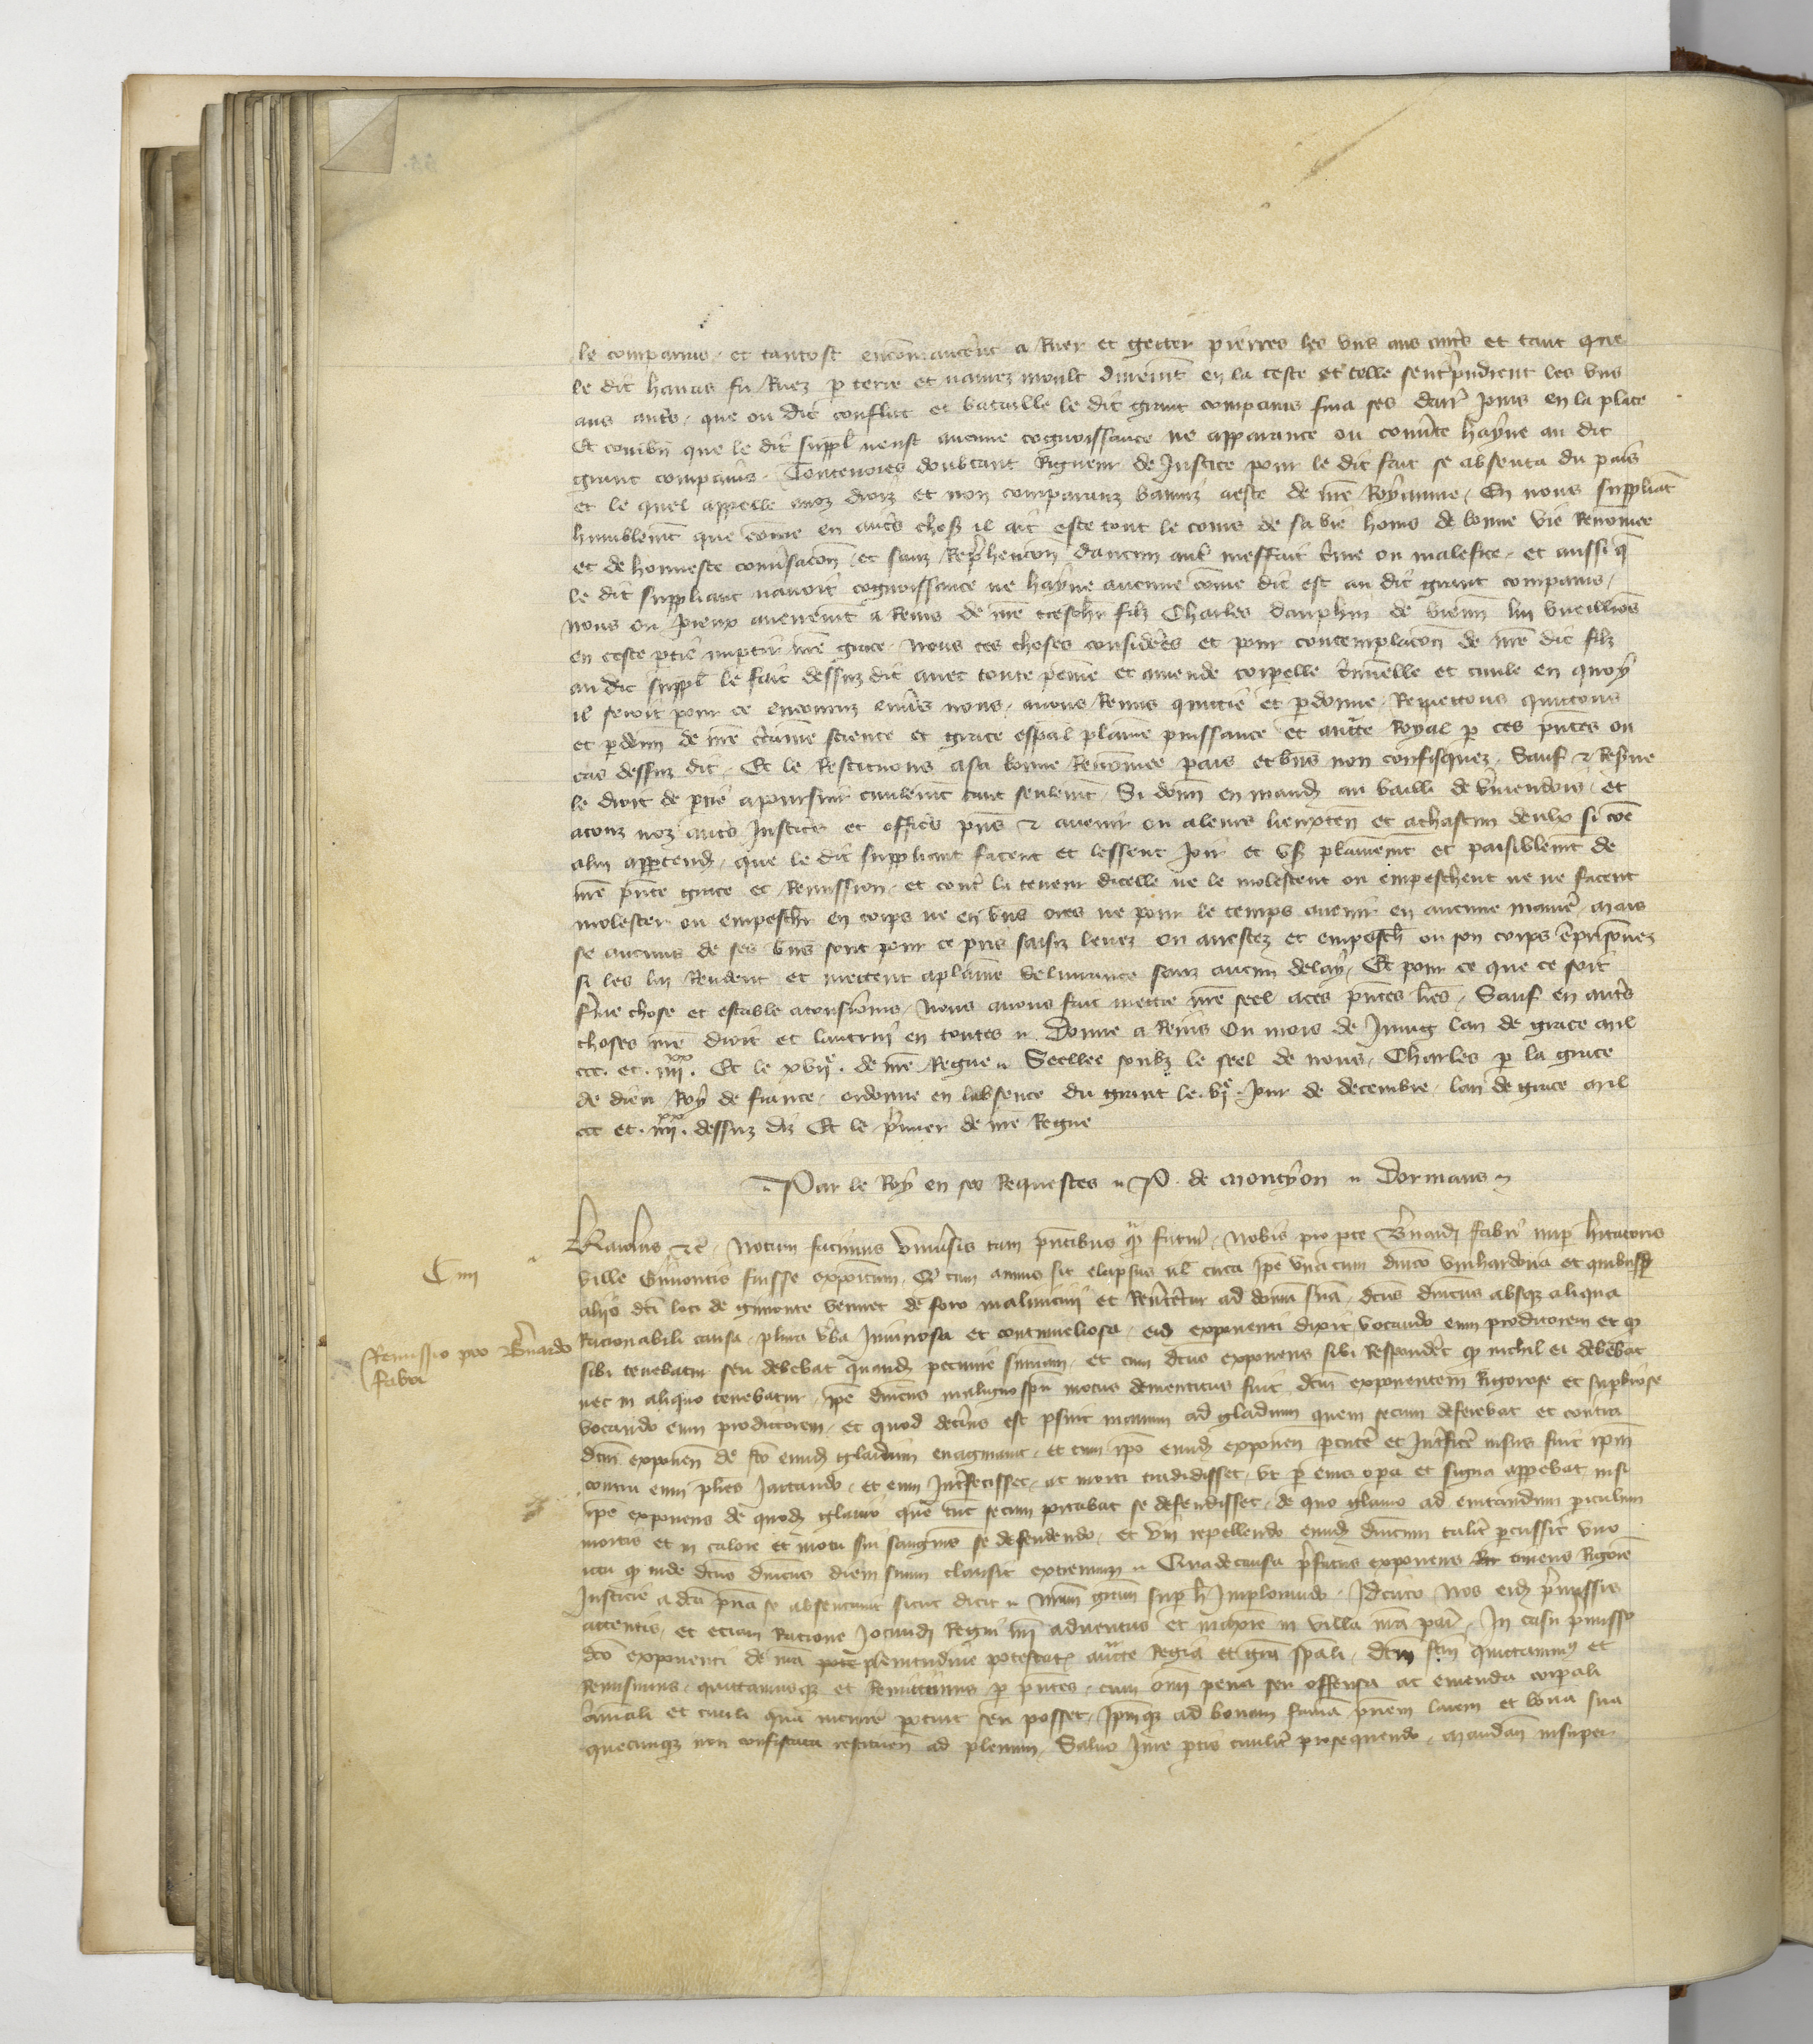 le companis et tantost encommancerent a Ruer et getter pierres les uns aus autrs et tant que
le dit hanas fu Ruez p terre et navrez moult duremt en la teste et telle sentrpndient les uns
aus autrs que ou dit conflict et bataille le dit grant companis fina ses darr Jours en la place
Et combn que le dit suppl neust aucune cognoissance ne apparance ou couvte hayne au dit
grant companis Toutevoies doubtant Rigueur de Justice pour le dit fait se absenta du pais
et le quel appelle avoz droiz et non comparanz banniz aeste de nre Royaume En nous suppliat
humblemt que come en autrs choses il ait este tout le cours de sa vie homs de bonne vie Renomee
et de honneste conusacon et sanz Reprehencon daucun autre meffait cme ou malefice et aussi q
le dit suppliant navoit cognoissance ne hayne aucune come dit est au dit grant companis
nous ou Jieux avenemt a Reins de nre treschr filz Charles dauphin de vienn lui vueillios
en ceste ptie impartir nre grace Nous ces choses considerees et pour contemplacon de nre dit filz
au dit suppl le fait dessus dit avec toute peine et amende corpelle crimelle et civile en quoy
il seroit pour ce encouruz envers nous avons Remis quictie et pdonne Remettons quictons
et pdonn de nre ctaine science et grace espal plaine puissance et aucte Royal p ces pntes ou
cas dessus dit Et le Restituons a sa bonne Renomee pais et bns non confisquez Sauf & Reserve
le droit de ptie a poursuir civilemt tant seulemt Si donn en mandt au bailli de vmendois et
a touz noz autrs Justices et offices pns & avenir ou a leurs lieuxten et a chascun deulx si coe
a lui appartendra que le dit suppliant facent et lessent Joir et user plainemt et paisiblemt de
nre pnte grace et Remission et contre la teneur dicelle ne le molestent ou empeschent ne ne facent
molester ou empeschr en corps ne en bns ores ne pour le temps avenir en aucune maniere mais
se aucuns de ses bns sont pour ce pris saisiz levez ou arrestez et empesch ou son corps eprisonez
si les lui Rendent et mettent a plaine delivrance sanz aucun delay Et pour ce que ce soit
ferme chose et estable a tousiours Nous avons fait mettre nre seel a ces pntes lres Sauf en autrs
choses nre droit et lautruy en toutes Donne a Reins Ou mois de Juing lan de grace mil
ccc et iiiixx Et le xviie de nre Regne Seellee soubz le seel de nous Charles p la grace
de dieu Roy de France ordonne en labsence du grant le vie Jour de decembre lan de grace mil
ccc et iiiixx dessus diz Et le pmier de nre Regne
Par le Roy en ses Requestes P. de montyon Dormans
Karolus &c Notum facimus Univsis tam pntibus q futur Nobis pro pte Bnardi Fabri nup hitatoris
ville Gimontis fuisse expositum Qd cum annus sit elapsus vl circa ipe unacum dnico et quibusd
aliis dci loci de gimonte veniret de foro et Revteretur ad domu sua dcus dnicus absq aliqua
Racionabili causa plura vba Iniuriosa et contumeliosa eid exponenti dixit vocando eum proditorem et q
sibi tenebatur seu debebat quand pecunie summam et cum dcus exponens sibi Respondet q nichil ei debebat
nec in aliquo tenebatur ipe dnicus maligno spu motus dementitus fuit dcm exponentem Rigorose et supbiose
vocando eum proditorem et quod deterius est psuit manum ad gladium quem secum deferebat et contra
dcm exponen de fco eiusd gladium evaginavit et cum ipo eund exponen pcutre et Intrficre nisus fuit ipm
contra eum plries Jactando et eum Intrfecisset ac morti tradidisset ut p eius opa et signa appebat nisi
ipe exponens de quod glavio que tuc secum portabat se defendisset de quo glavio ad evitandum piculum
mortis et in calore et motu sui sanguis se defendendo et vim repellendo eund dnicum talit pcussit uno
ictu q inde dcus dnicus diem suum clausit extremum Qua de causa pfatus exponens timens Rigore
Justicie a dca pria se absentavit sicut dicit nram gram sup h Implorando Idcirco Nos eid pmissis
attentis et etiam Ratione Jocundi Regni nri adventus et maxime in villa nra par In casu pmisso
dco exponenti de nra plenitudine potestatis aucte Regia et gra spali dcm fcm quictavimus et
Remisimus quictamusq et Remittimus p pntes cum omi pena seu offensa ac emenda corpali
criminali et civili qua incurre potuit seu posset Ipmq ad bonam fama priem laiem et bona sua
quecunq non confiscata restituen ad plenum Salvo Jure ptis civilit prosequendo mandan insuper
C iiii
Remissio pro Bnardo
Fabri